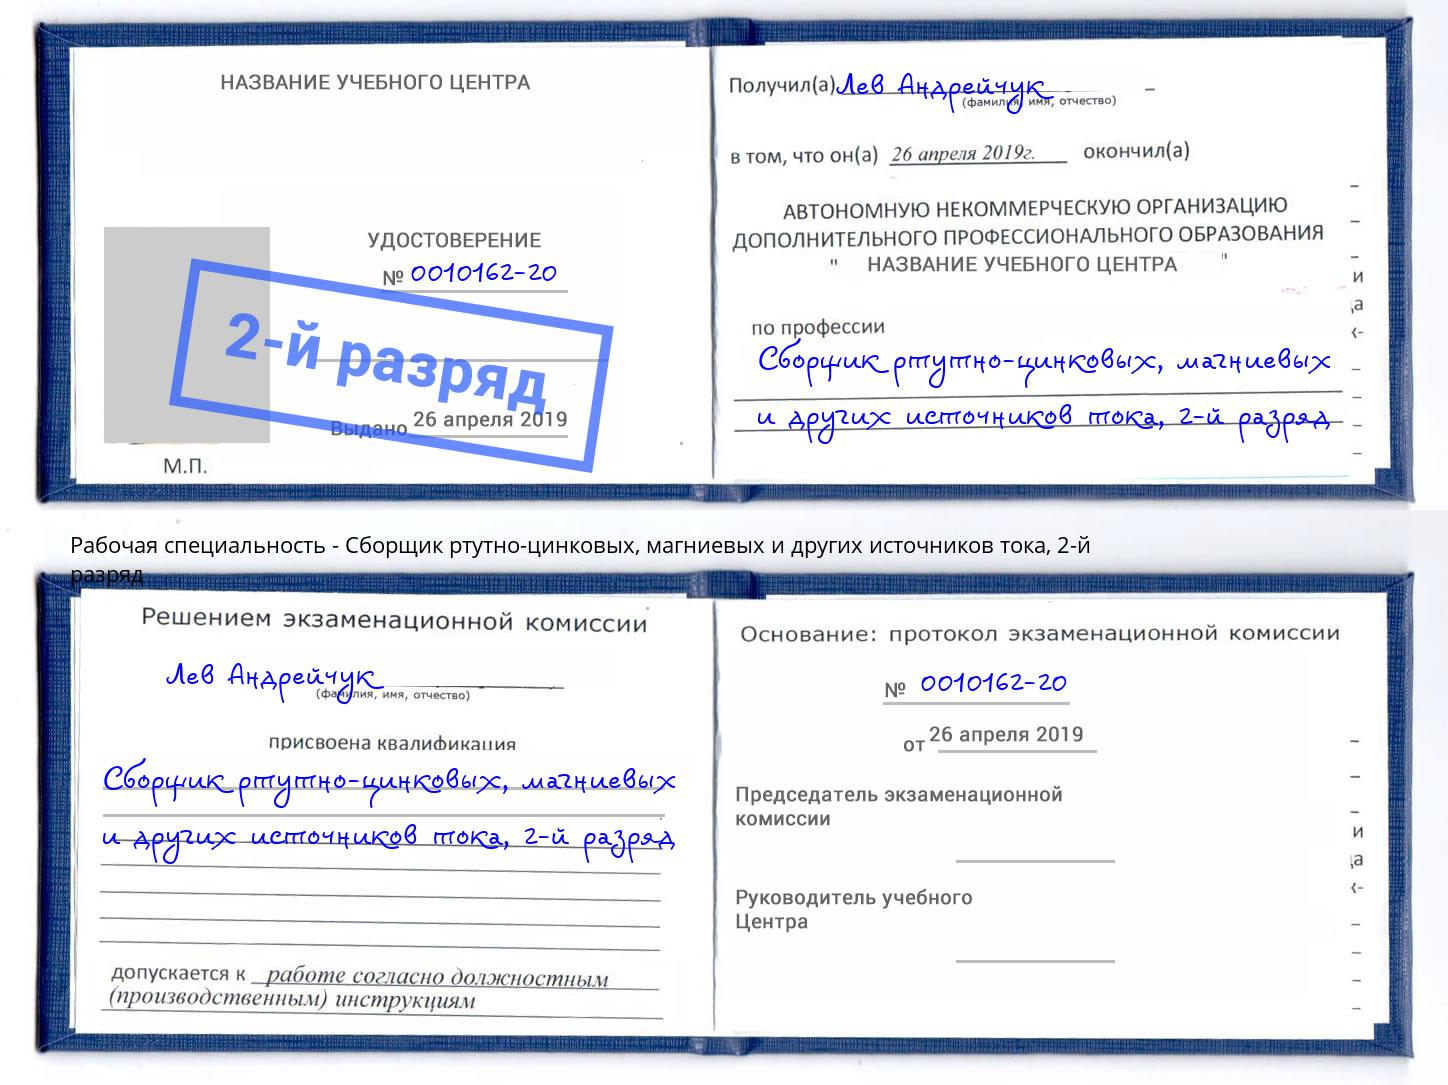 НАЗВАНИЕ УЧЕБНОГО ЦЕНТРА
УДОСТОВЕРЕНИЕ
№ 0010162-20
2-й разряд
Выдано 26 апреля 2019
М.П.
Получил(а) Лев Андрейчук
(фамилия, имя, отчество)
в том, что он(а) 26 апреля 2019г. окончил(а)
АВТОНОМНУЮ НЕКОММЕРЧЕСКУЮ ОРГАНИЗАЦИЮ
ДОПОЛНИТЕЛЬНОГО ПРОФЕССИОНАЛЬНОГО ОБРАЗОВАНИЯ
" НАЗВАНИЕ УЧЕБНОГО ЦЕНТРА "
по профессии
Сборщик ртутно-цинковых, магниевых
и других источников тока, 2-й разряд
Рабочая специальность - Сборщик ртутно-цинковых, магниевых и других источников тока, 2-й
разряд
Решением экзаменационной комиссии
Лев Андрейчук
(фамилия, имя, отчество)
присвоена квалификация
Сборщик ртутно-цинковых, магниевых
и других источников тока, 2-й разряд
допускается к работе согласно должностным
(производственным) инструкциям
Основание: протокол экзаменационной комиссии
№ 0010162-20
от 26 апреля 2019
Председатель экзаменационной
комиссии
Руководитель учебного
Центра